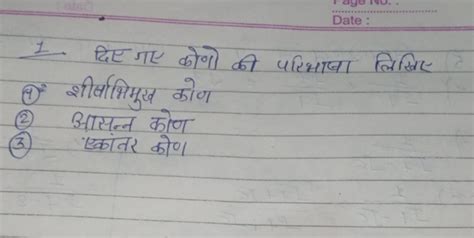 Page No. :
Date :
1. दिए गए कोणो की परिभाषा लिखिए
① शीर्षाभिमुख कोण
② आसन्न कोण
③ एकांतर कोण